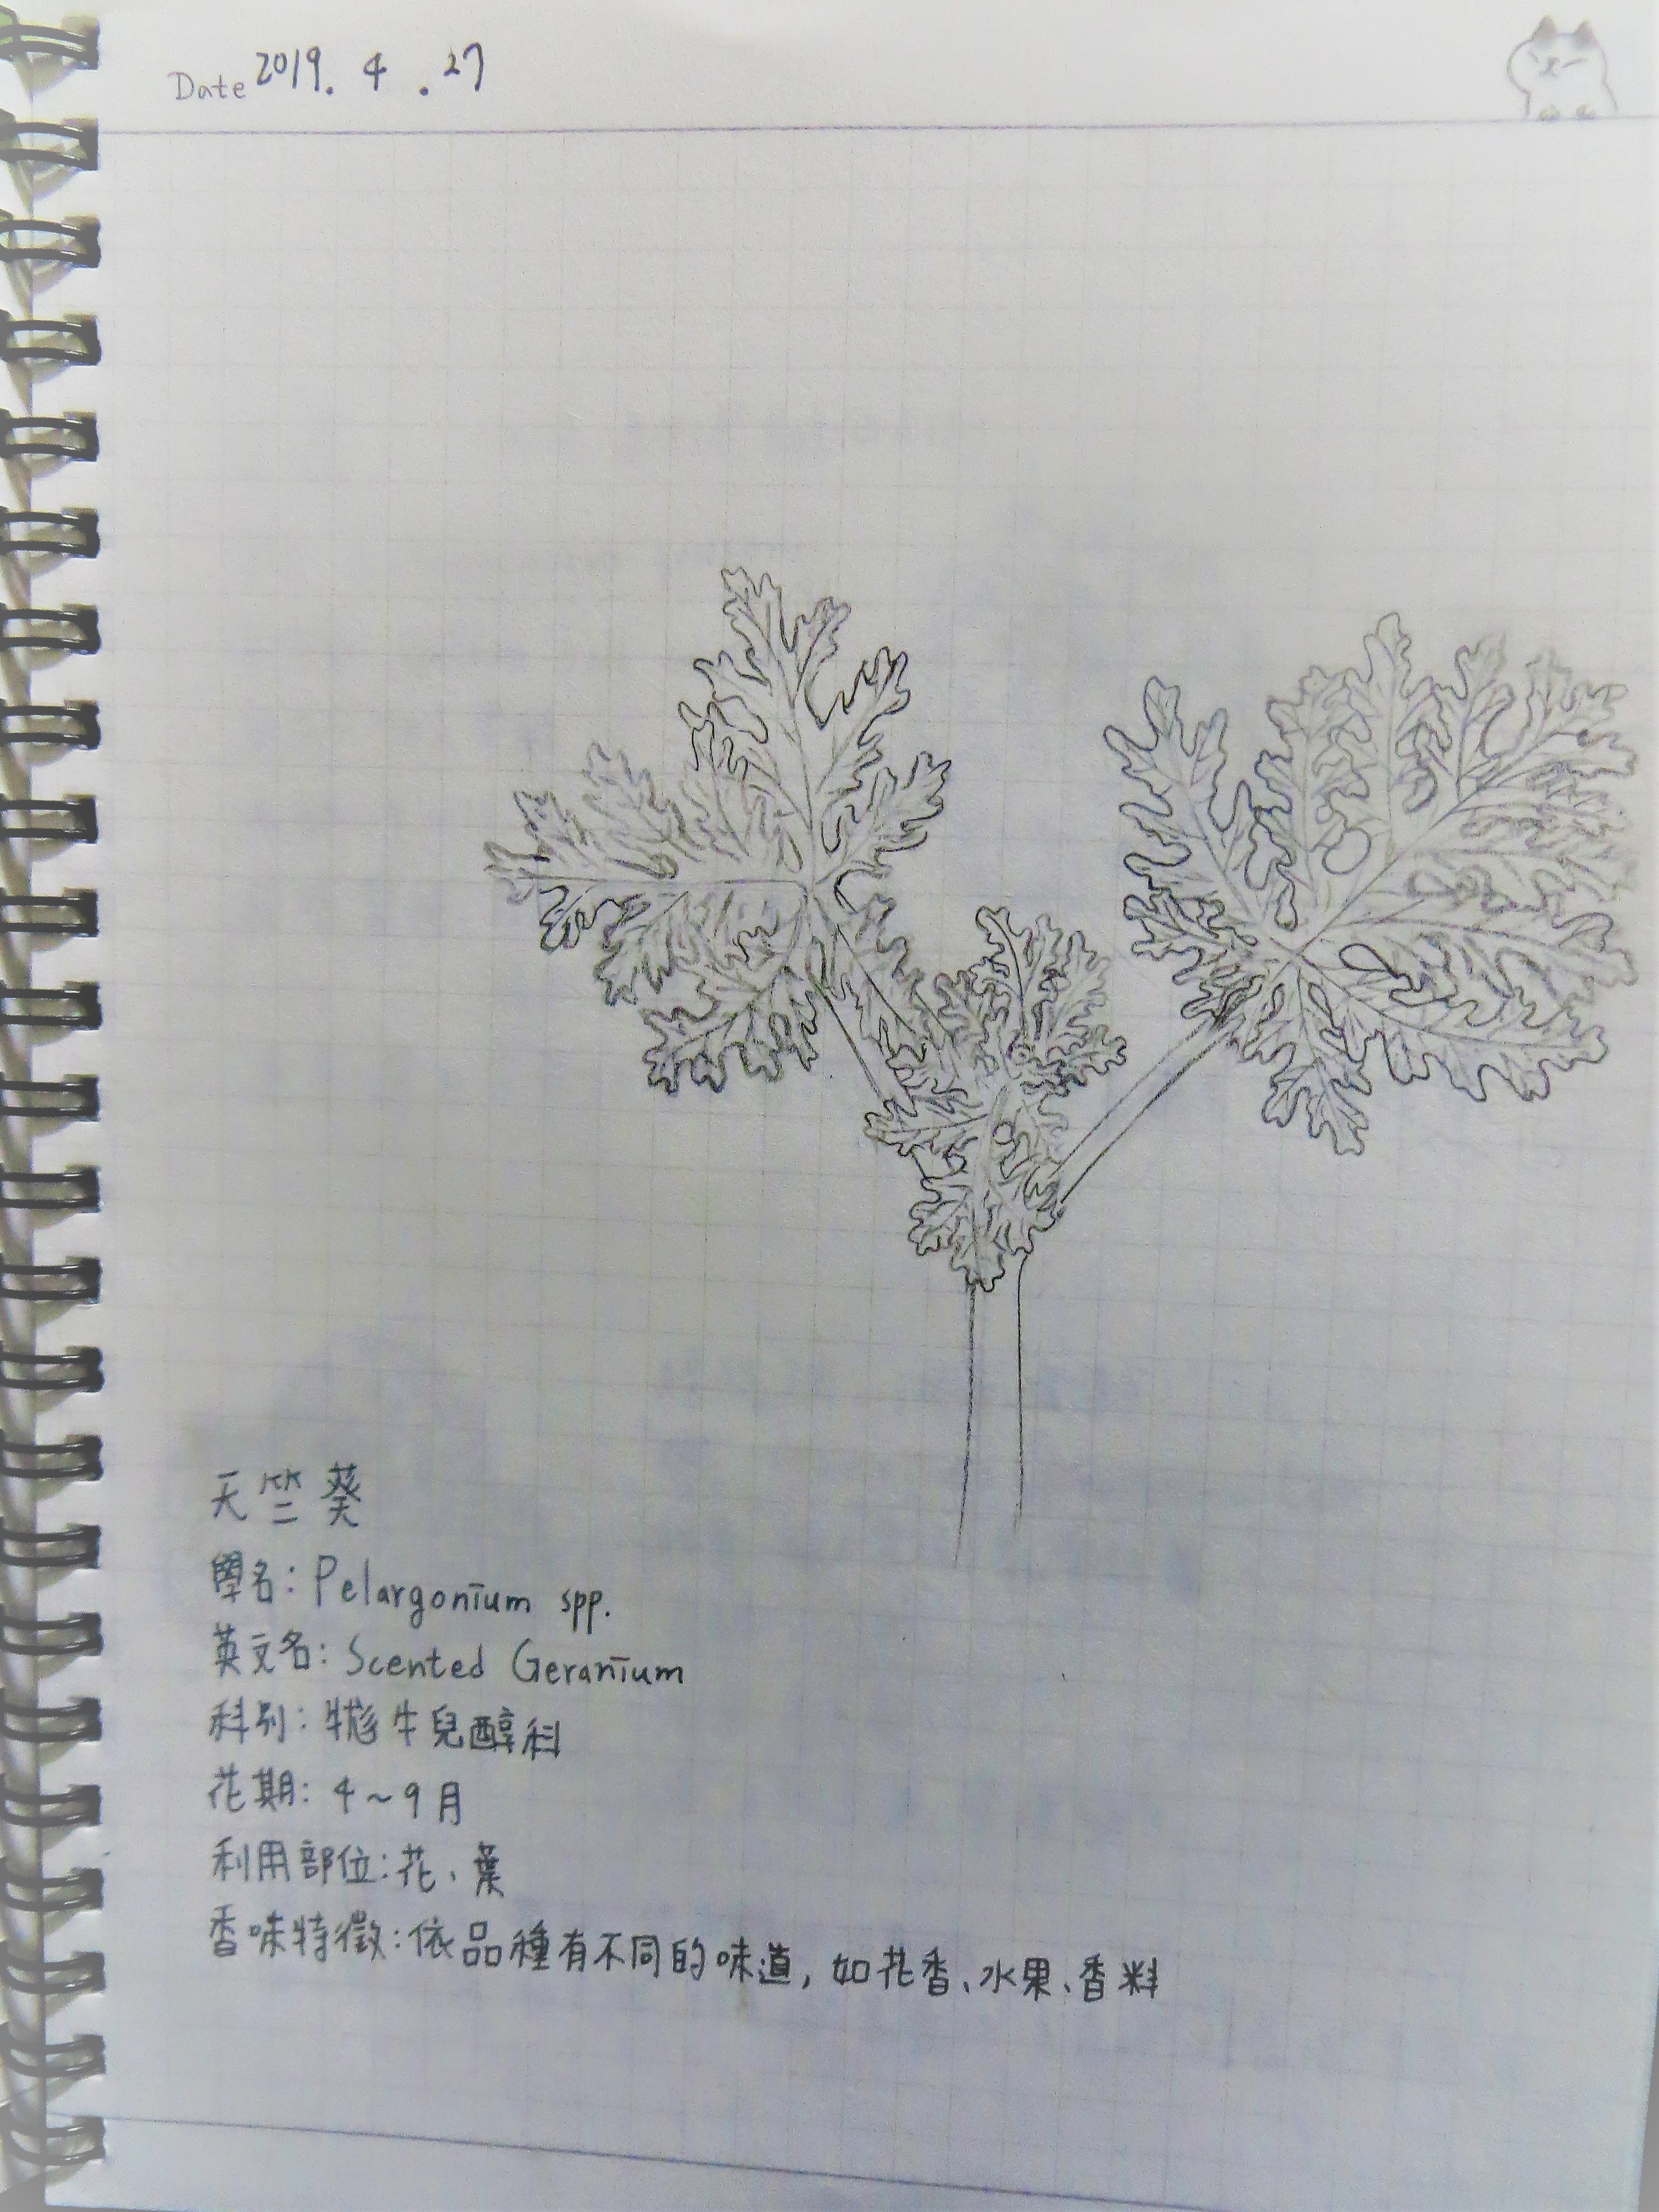 Date 2019. 4 . 27
天竺葵
學名: Pelargonium spp.
英文名: Scented Geranium
科別: 牻牛兒醇科
花期: 4~9月
利用部位:花、葉
香味特徵:依品種有不同的味道, 如花香、水果、香料